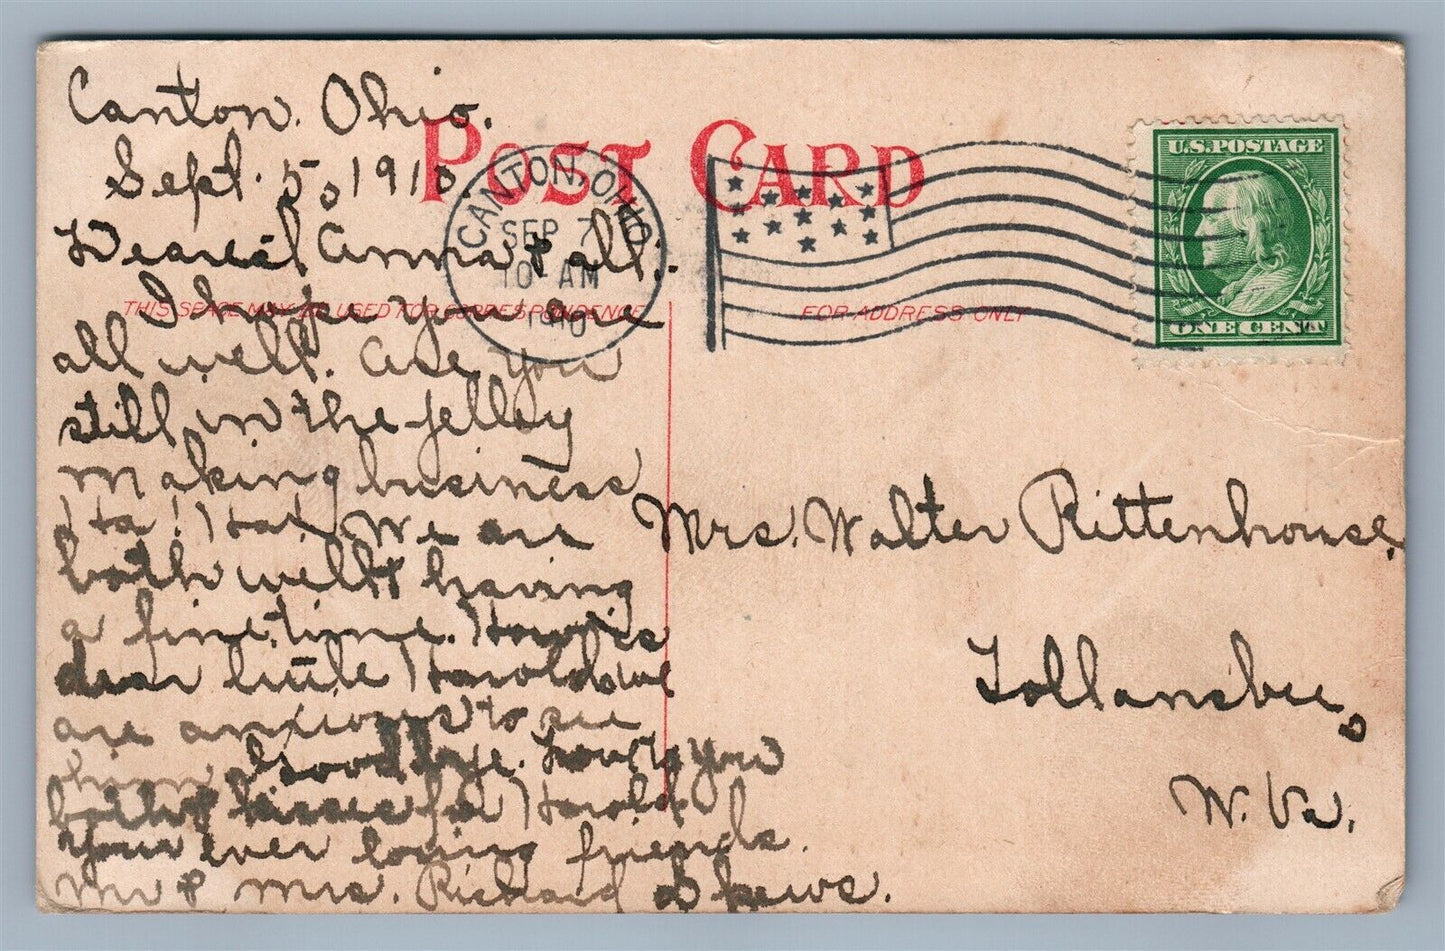 Canton. Ohio.
Sept. 5, 1910
Dearest Anna & all.
I hope you are
all well. are you
still in the jelley
making business
Ha! Ha! We are
both well & having
a fine time. How is
dear little Harold. we
are anxious to see
him. Goodbye. Love to you
both & kisses for Harold.
Your ever loving friends.
Mr & Mrs. Richard
POST CARD
THIS SPACE MAY BE USED FOR CORRESPONDENCE
FOR ADDRESS ONLY
CANTON, OHIO
SEP 7
10 AM
1910
U.S. POSTAGE
ONE CENT
Mrs. Walter Rittenhouse.
Follansbee,
W. Va.